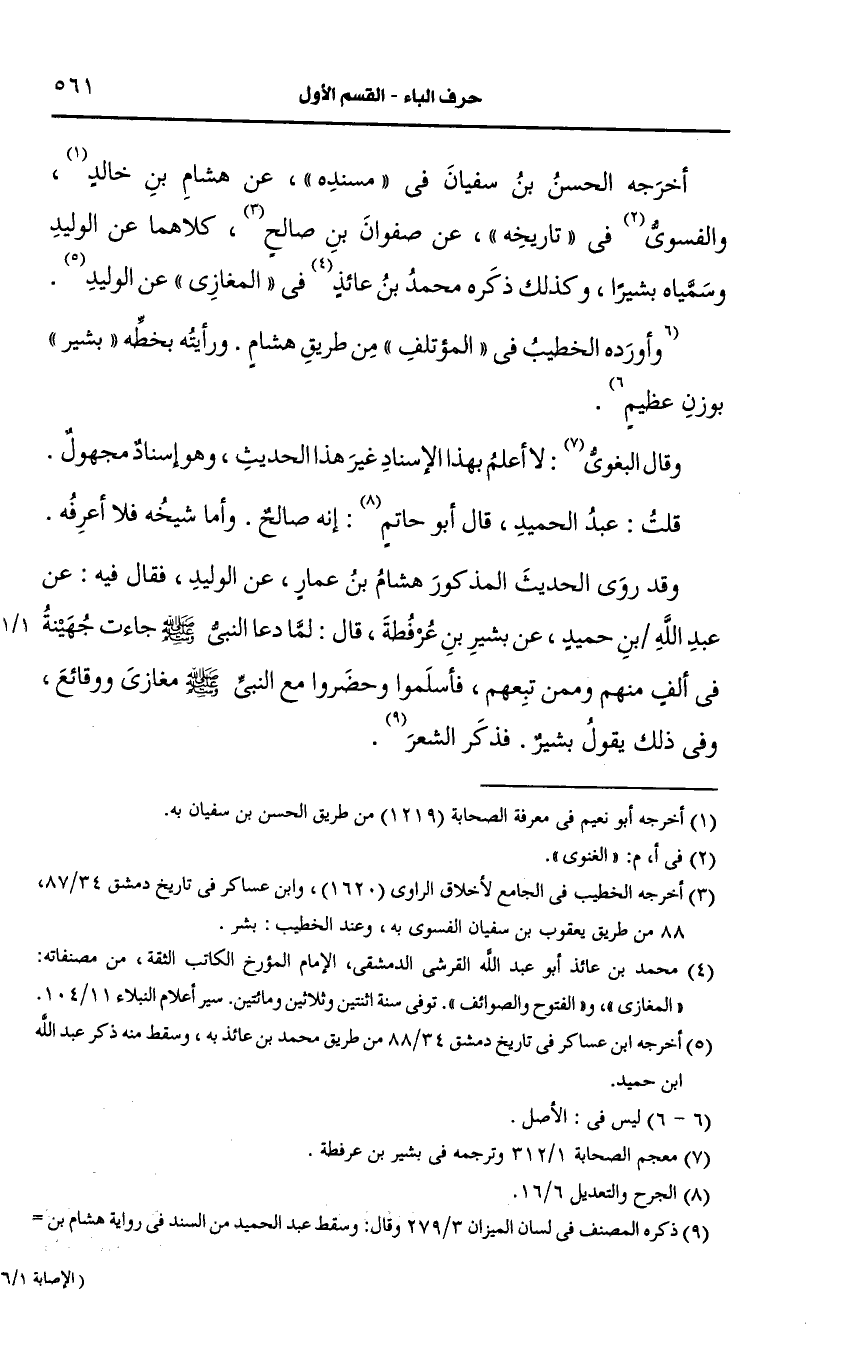 حرف الباء - القسم الأول ٥٦١
أخرَجه الحسنُ بنُ سفيانَ فى « مسندِه » ، عن هشامِ بنِ خالدٍ(١) ،
والفسوىُّ(٢) فى « تاريخِه » ، عن صفوانَ بنِ صالحٍ(٣) ، كلاهما عن الوليدِ
وسَمَّياه بشيرًا ، وكذلك ذكَره محمدُ بنُ عائذٍ(٤) فى « المغازِى » عن الوليدِ(٥) .
(٦وأورَده الخطيبُ فى « المؤتلفِ » مِن طريقِ هشامٍ . ورأيتُه بخطِّه « بشير »
بوزنِ عظيمٍ٦) .
وقال البغوىُّ(٧) : لا أعلمُ بهذا الإسنادِ غيرَ هذا الحديثِ ، وهو إسنادٌ مجهولٌ .
قلتُ : عبدُ الحميدِ ، قال أبو حاتمٍ(٨) : إنه صالحٌ . وأما شيخُه فلا أعرِفُه .
وقد روَى الحديثَ المذكورَ هشامُ بنُ عمارٍ ، عن الوليدِ ، فقال فيه : عن
عبدِ اللَّهِ /بنِ حميدٍ ، عن بشيرِ بنِ عُرْفُطةَ ، قال : لمَّا دعا النبىُّ ﷺ جاءت جُهَيْنةُ ١/١
فى ألفٍ منهم وممن تبِعهم ، فأسلَموا وحضَروا مع النبىِّ ﷺ مغازىَ ووقائعَ ،
وفى ذلك يقولُ بشيرٌ . فذكَر الشعرَ(٩) .
(١) أخرجه أبو نعيم فى معرفة الصحابة (١٢١٩) من طريق الحسن بن سفيان به.
(٢) فى أ، م: « الغنوى ».
(٣) أخرجه الخطيب فى الجامع لأخلاق الراوى (١٦٢٠) ، وابن عساكر فى تاريخ دمشق ٨٧/٣٤،
٨٨ من طريق يعقوب بن سفيان الفسوى به ، وعند الخطيب : بشر .
(٤) محمد بن عائذ أبو عبد اللَّه القرشى الدمشقى، الإمام المؤرخ الكاتب الثقة ، من مصنفاته:
« المغازى »، و« الفتوح والصوائف ». توفى سنة اثنتين وثلاثين ومائتين. سير أعلام النبلاء ١٠٤/١١.
(٥) أخرجه ابن عساكر فى تاريخ دمشق ٨٨/٣٤ من طريق محمد بن عائذ به ، وسقط منه ذكر عبد اللَّه
ابن حميد.
(٦ - ٦) ليس فى : الأصل .
(٧) معجم الصحابة ٣١٢/١ وترجمه فى بشير بن عرفطة .
(٨) الجرح والتعديل ١٦/٦.
(٩) ذكره المصنف فى لسان الميزان ٢٧٩/٣ وقال: وسقط عبد الحميد من السند فى رواية هشام بن =
( الإصابة ٦/١